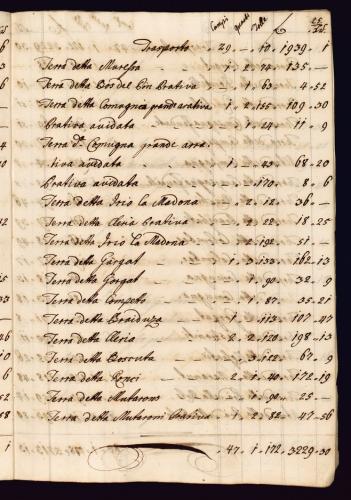 Trasporto 29 - 10 1939 1
Terra detta Maressa 1 2 72 135 -
Terra detta 1 63 4 52
Terra detta Comugna grande arativa 1 2 155 109 30
Prativa avidata 1 24 11 9
Terra Comugna grande arra
tiva avidata 1 - 43 68 20
Prativa avidata 170 8 6
Terra detta Prio la Madona 2 12 36 -
Terra detta Cleria Prativa 2 22 18 25
Terra detta Prio la Madona 2 192 51 -
Terra detta Gorgal 1 3 133 162 13
Terra detta Gorgal 1 90 32 9
Terra detta Competto 1 87 35 21
Terra detta Braiduza 1 113 107 47
Terra detta Cleria 2 2 120 198 13
Terra detta Boscuta 3 122 67 9
Terra detta Ronci 2 1 40 172 19
Terra detta Mutarons 1 90 25 -
Terra detta Mutaroni Prativa 1 2 82 47 56
47 1 172 3229 30